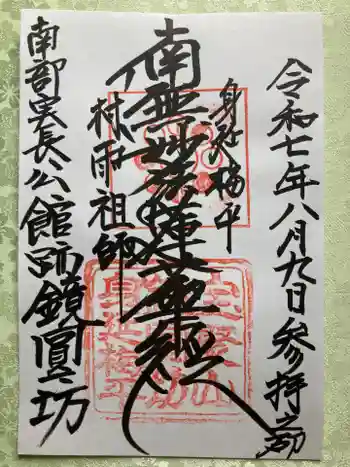 令和七年八月九日参拝之砌
身延梅平
南無妙法蓮華経
村雨祖師
南部実長公館跡鏡圓坊